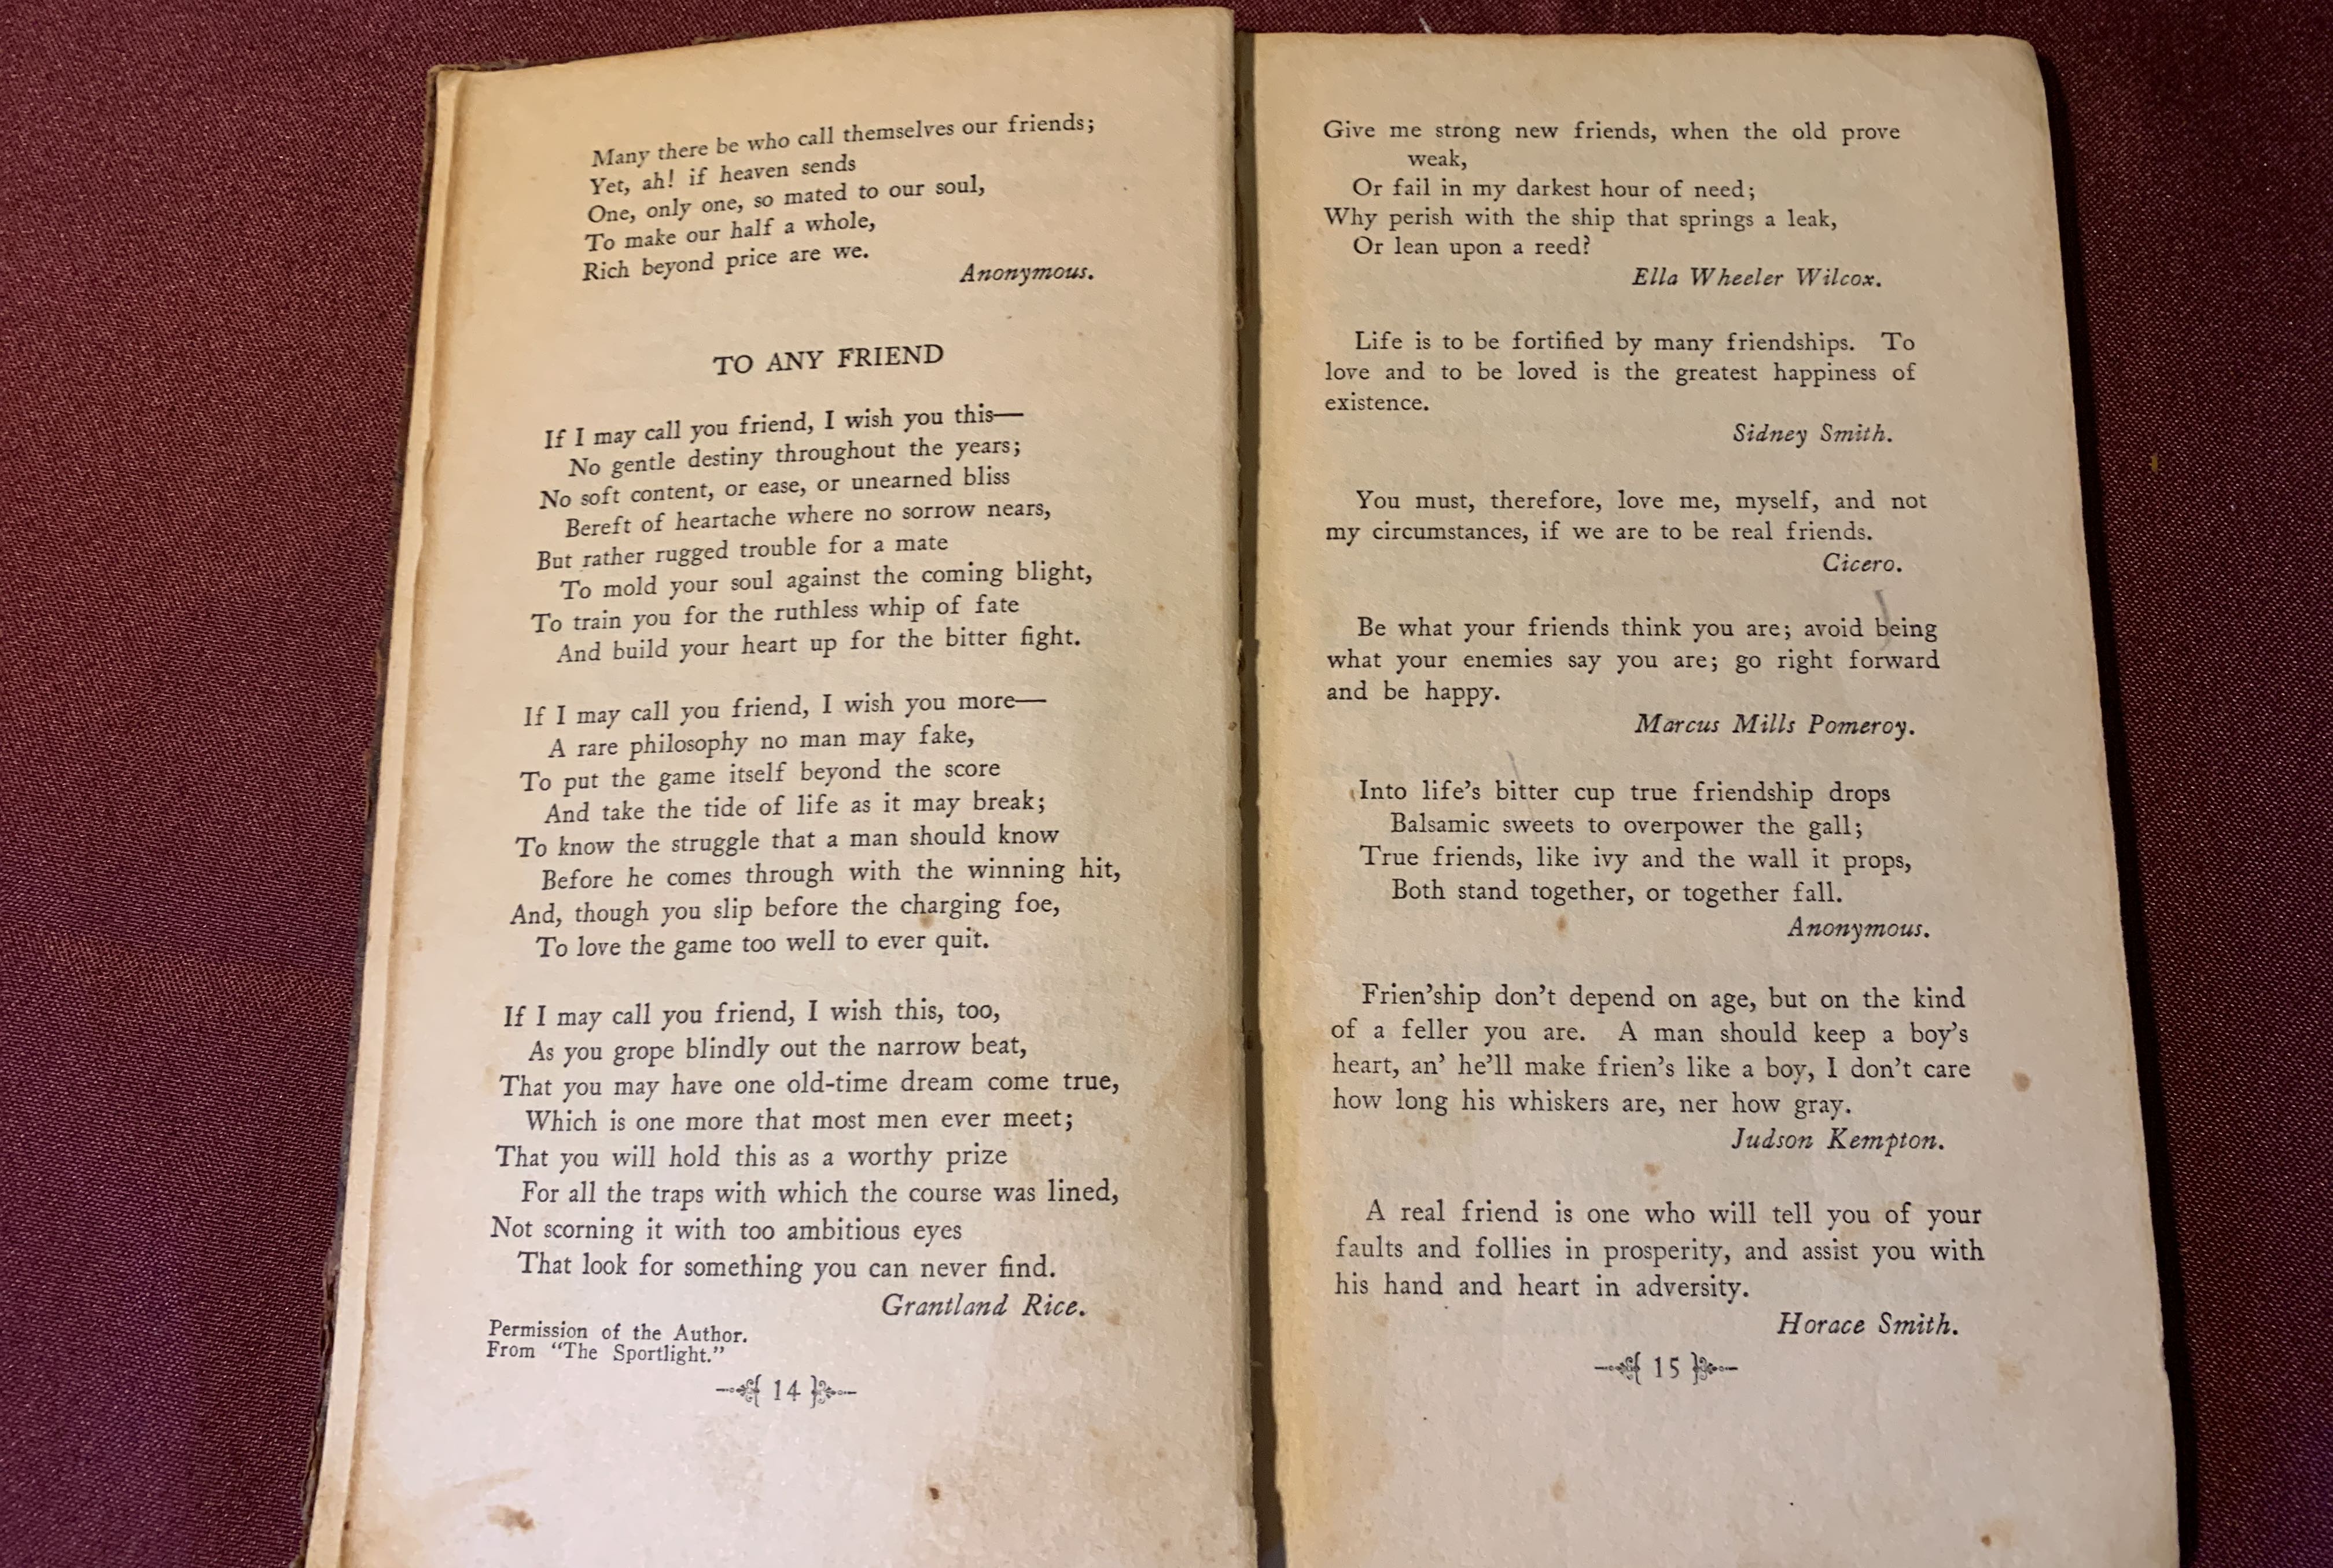 Many there be who call themselves our friends;
Yet, ah! if heaven sends
One, only one, so mated to our soul,
To make our half a whole,
Rich beyond price are we.
Anonymous.
TO ANY FRIEND
If I may call you friend, I wish you this—
No gentle destiny throughout the years;
No soft content, or ease, or unearned bliss
Bereft of heartache where no sorrow nears,
But rather rugged trouble for a mate
To mold your soul against the coming blight,
To train you for the ruthless whip of fate
And build your heart up for the bitter fight.
If I may call you friend, I wish you more—
A rare philosophy no man may fake,
To put the game itself beyond the score
And take the tide of life as it may break;
To know the struggle that a man should know
Before he comes through with the winning hit,
And, though you slip before the charging foe,
To love the game too well to ever quit.
If I may call you friend, I wish this, too,
As you grope blindly out the narrow beat,
That you may have one old-time dream come true,
Which is one more that most men ever meet;
That you will hold this as a worthy prize
For all the traps with which the course was lined,
Not scorning it with too ambitious eyes
That look for something you can never find.
Grantland Rice.
Permission of the Author.
From "The Sportlight."
14
Give me strong new friends, when the old prove
weak,
Or fail in my darkest hour of need;
Why perish with the ship that springs a leak,
Or lean upon a reed?
Ella Wheeler Wilcox.
Life is to be fortified by many friendships. To
love and to be loved is the greatest happiness of
existence.
Sidney Smith.
You must, therefore, love me, myself, and not
my circumstances, if we are to be real friends.
Cicero.
Be what your friends think you are; avoid being
what your enemies say you are; go right forward
and be happy.
Marcus Mills Pomeroy.
Into life's bitter cup true friendship drops
Balsamic sweets to overpower the gall;
True friends, like ivy and the wall it props,
Both stand together, or together fall.
Anonymous.
Frien'ship don't depend on age, but on the kind
of a feller you are. A man should keep a boy's
heart, an' he'll make frien's like a boy, I don't care
how long his whiskers are, ner how gray.
Judson Kempton.
A real friend is one who will tell you of your
faults and follies in prosperity, and assist you with
his hand and heart in adversity.
Horace Smith.
15